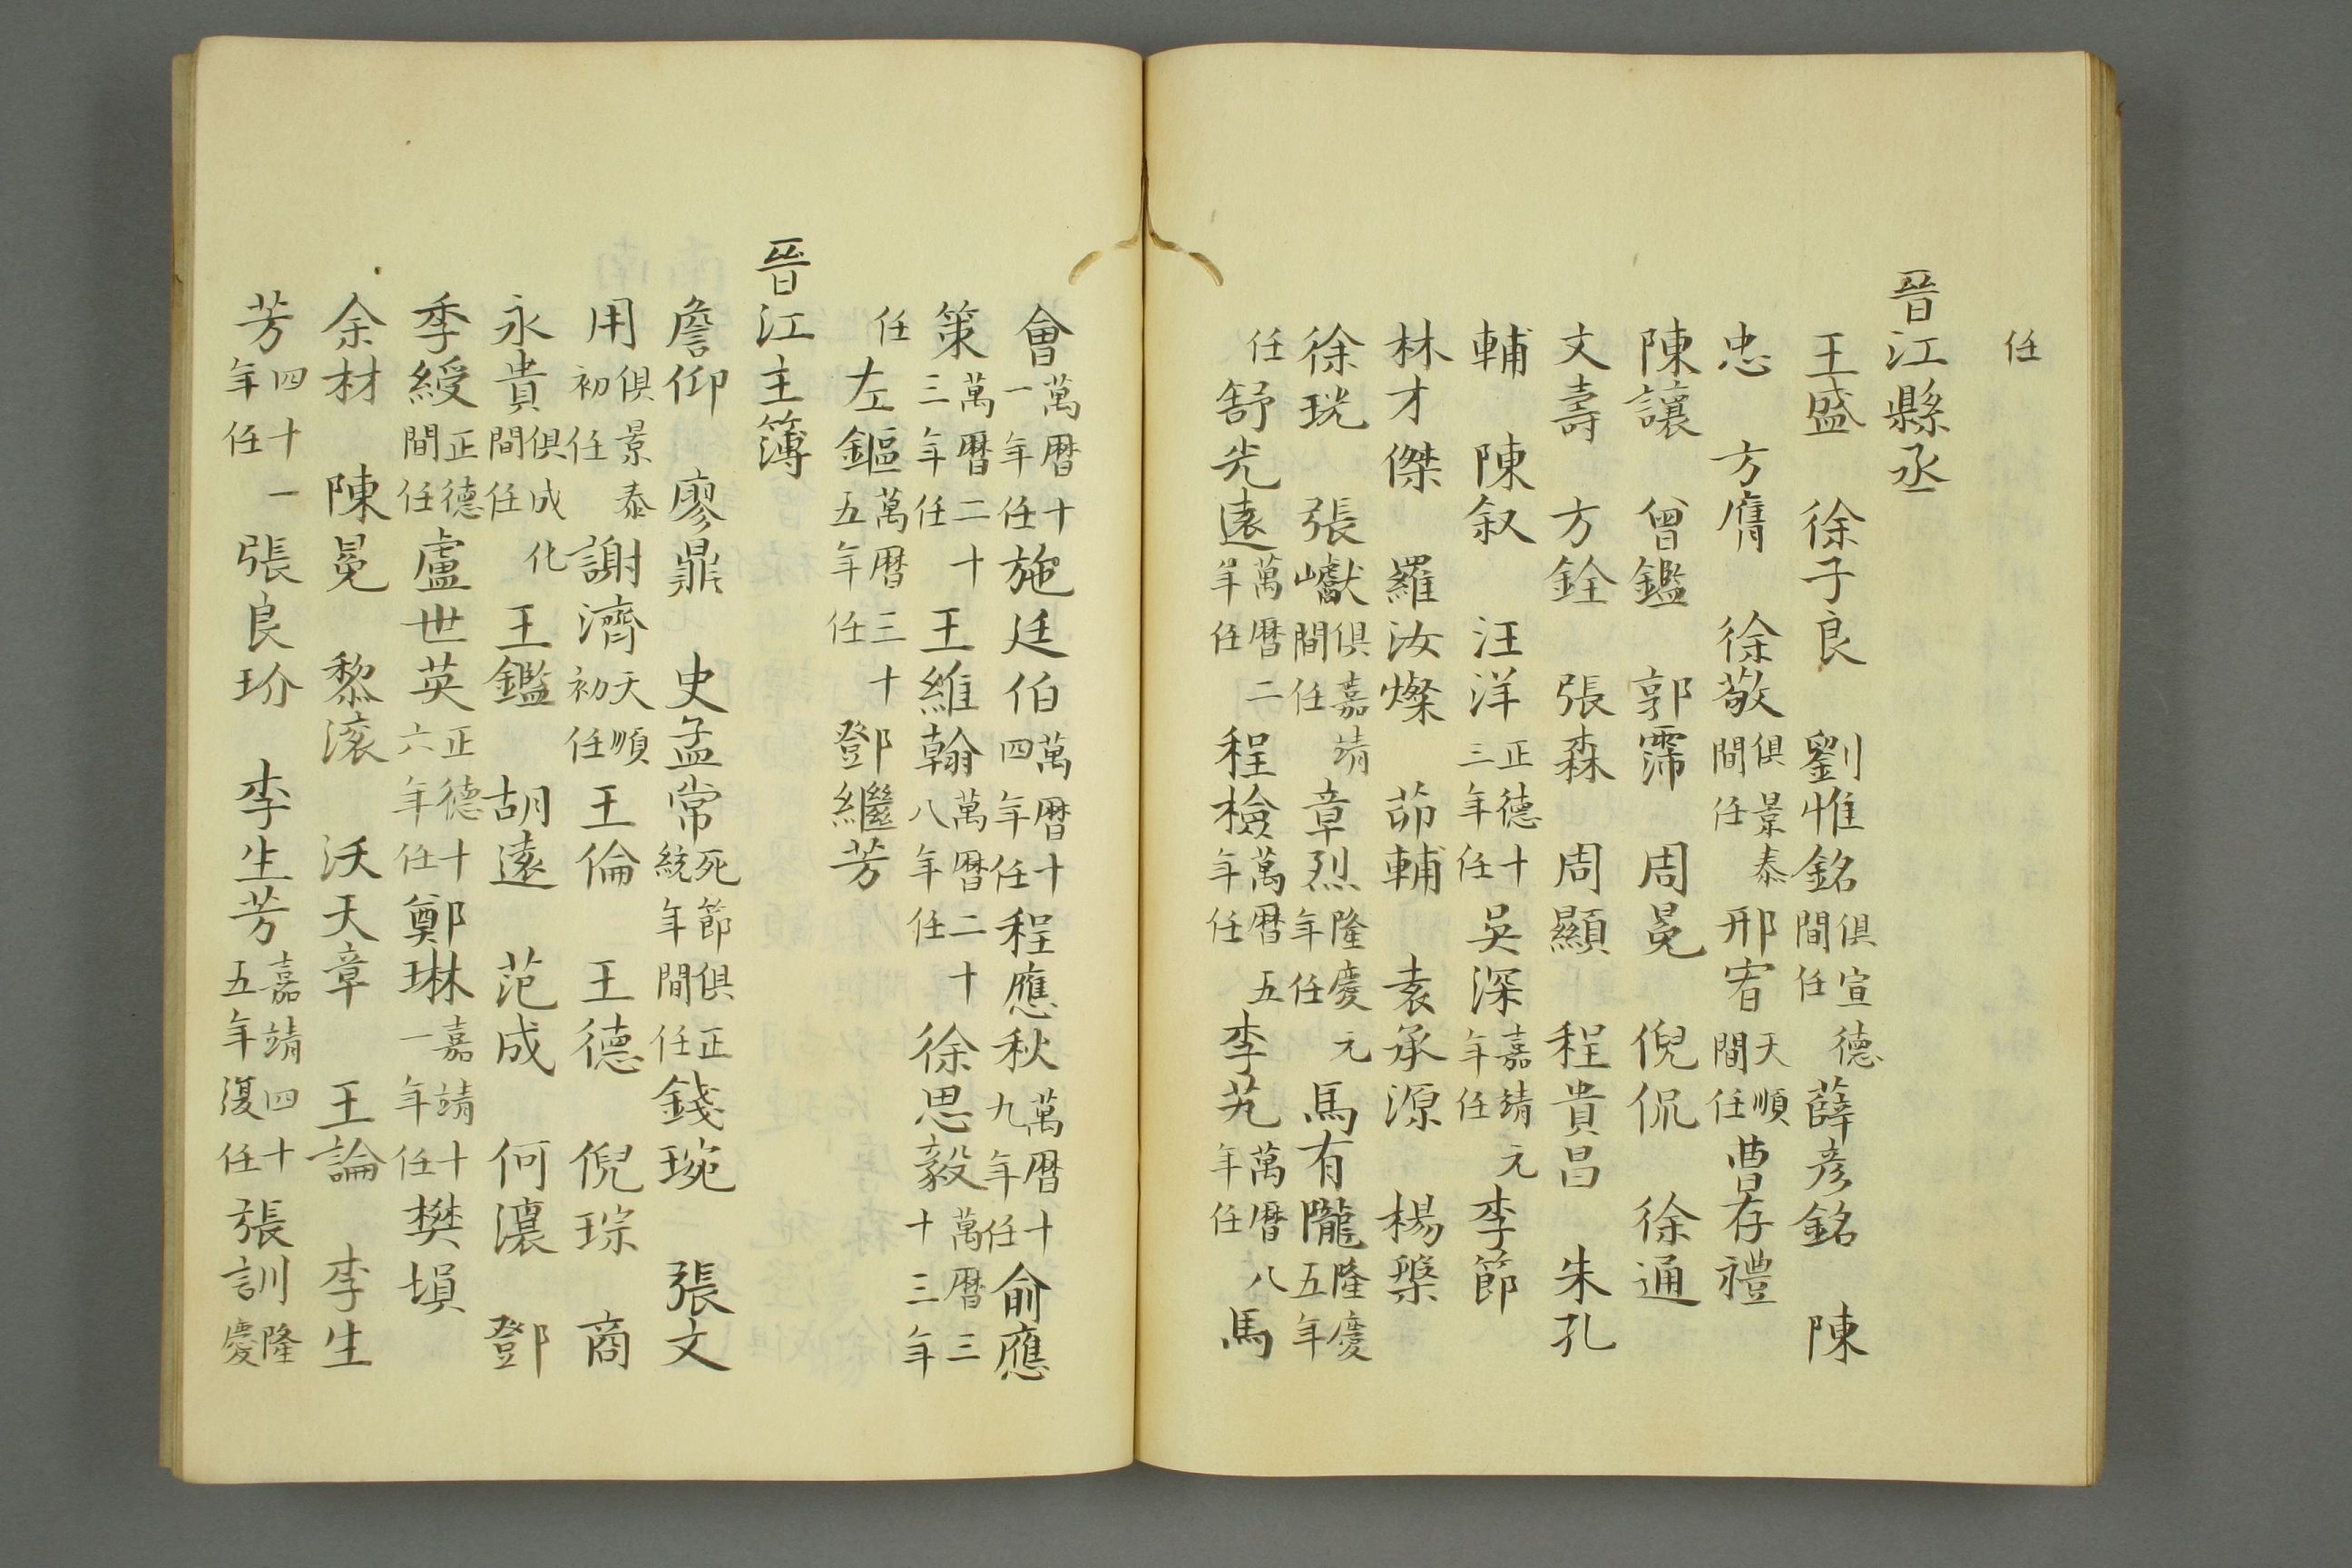 任
晉江縣丞
王盛　徐子良　劉惟銘俱宣德間任薛彦銘　陳
忠　方膺　徐敬俱景泰間任邢宥天順間任曹存禮
陳讓　曾鑑　郭霈　周冕　倪侃　徐通
文壽　方銓　張森　周顯　程貴昌　朱孔
輔　陳叙　汪洋正德十三年任吳深嘉靖元年任李節
林才傑　羅汝燦　茆輔　袁承源　楊槃
徐珖　張巘俱嘉靖間任章烈隆慶元年任馬有隴隆慶五年
任舒先遠萬曆二年任程檢萬曆五年任李芃萬曆八年任馬
會萬曆十一年任施廷伯萬曆十四年任程應秋萬曆十九年任俞應
策萬曆二十三年任王維翰萬曆二十八年任徐思毅萬曆三十三年
任左鏂萬曆三十五年任鄧繼芳
晉江主簿
詹仰　廖鼎　史孟常死節俱正統年間任錢琬　張文
用俱景泰初任謝濟天順初任王倫　王德　倪琮　商
永貴俱成化間任王鑑　胡遠　范成　何瀼　鄧
季綬正德間任盧世英正德十六年任鄭琳嘉靖十一年任樊塤
余材　陳冕　黎滚　沃天章　王論　李生
芳四十一年任張良玠　李生芳嘉靖四十五年復任張訓隆慶